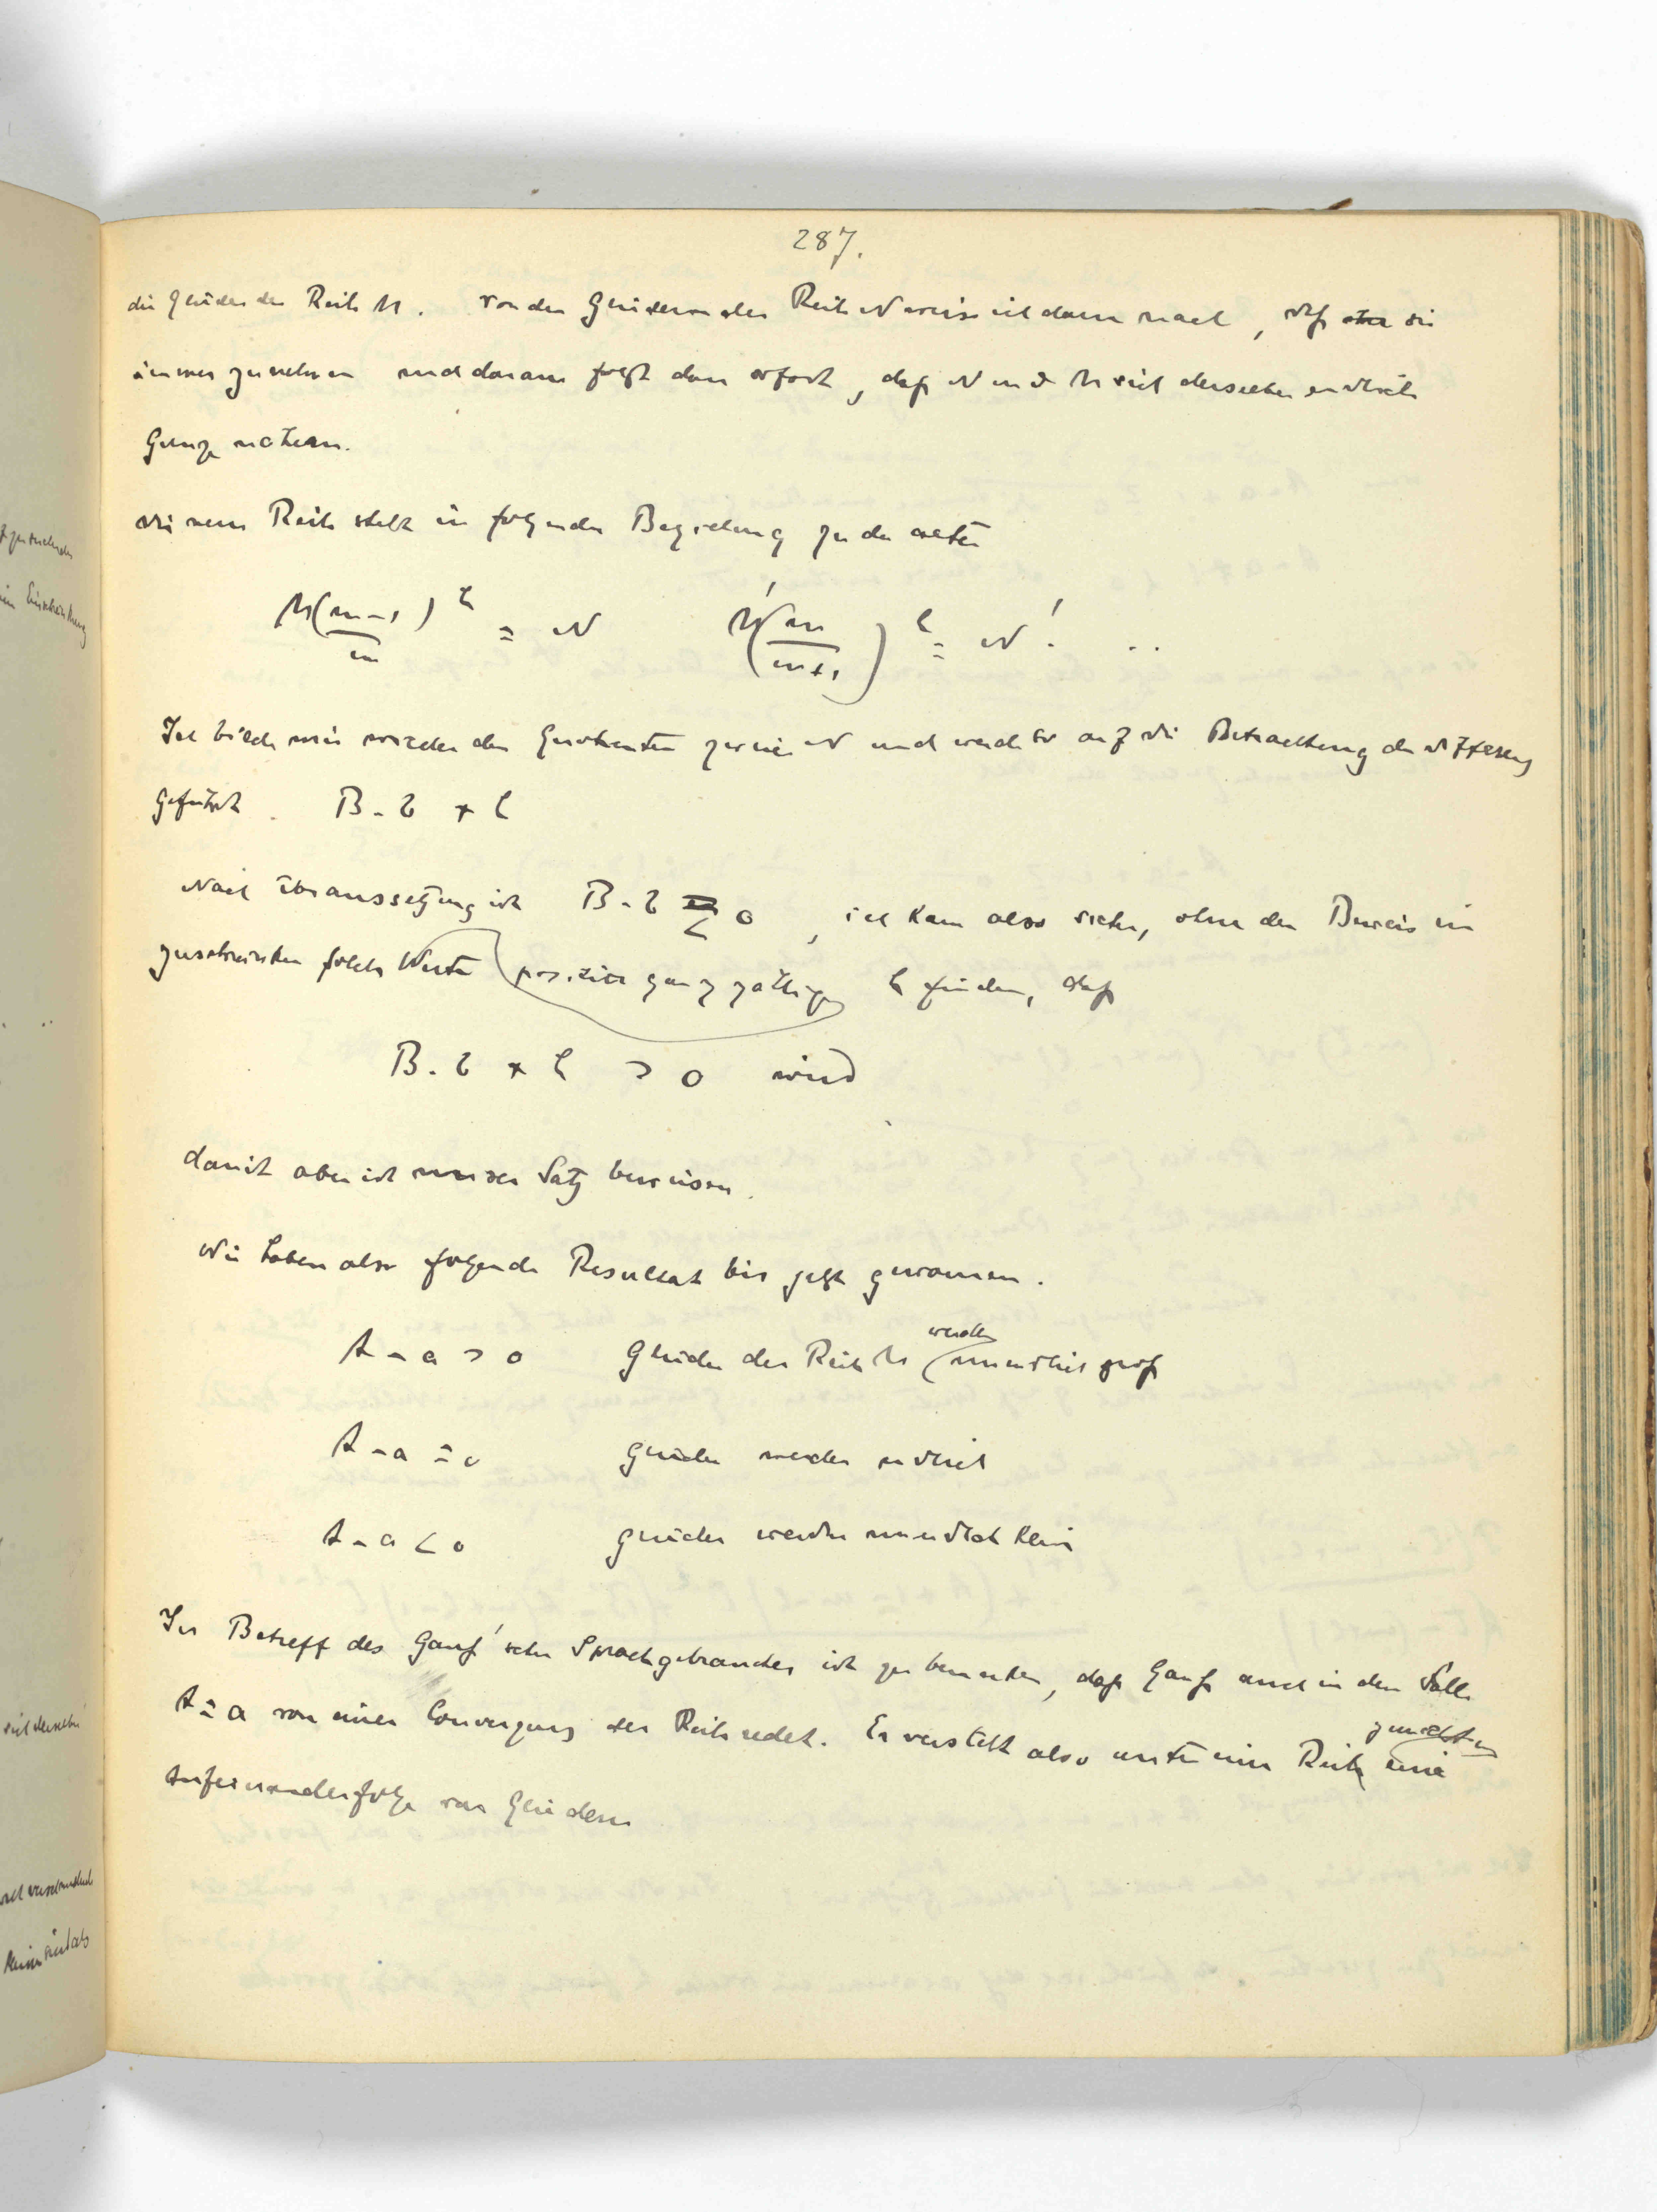 287.
die Glieder der Reihe M. Von den Gliedern der Reihe N weise ich dann nach, daß sie
immer zunehmen und daraus folgt dann sofort, daß N und M sich derselben endlich
Grenze nähern.
Die neue Reihe steht in folgender Beziehung zu der alten
M(m-1/m)^h = N M'(m/m+1)^h = N' ..
Ich bilde mir wieder den Quotienten zweier N und werde so auf die Betrachtung der Differenz
geführt. B - b + h
Nach Voraussetzung ist B - b < 0, ich kann also sicher, ohne den Beweis ein
zuschränken solche Werte positiv ganzzahlige h finden, daß
B - b + h > 0 wird
damit aber ist unser Satz bewiesen.
Wir haben also folgende Resultat bis jetzt gewonnen.
A - a > 0 Glieder der Reihe M werden unendlich groß
A - a = 0 Glieder werden endlich
A - a < 0 Glieder werden unendlich klein
In Betreff des Gauß'schen Sprachgebrauches ist zu bemerken, daß Gauß auch in dem Falle
A = a von einer Convergenz der Reihe redet. Er versteht also unter einer Reihe zunächst eine
Aufeinanderfolge von Gliedern